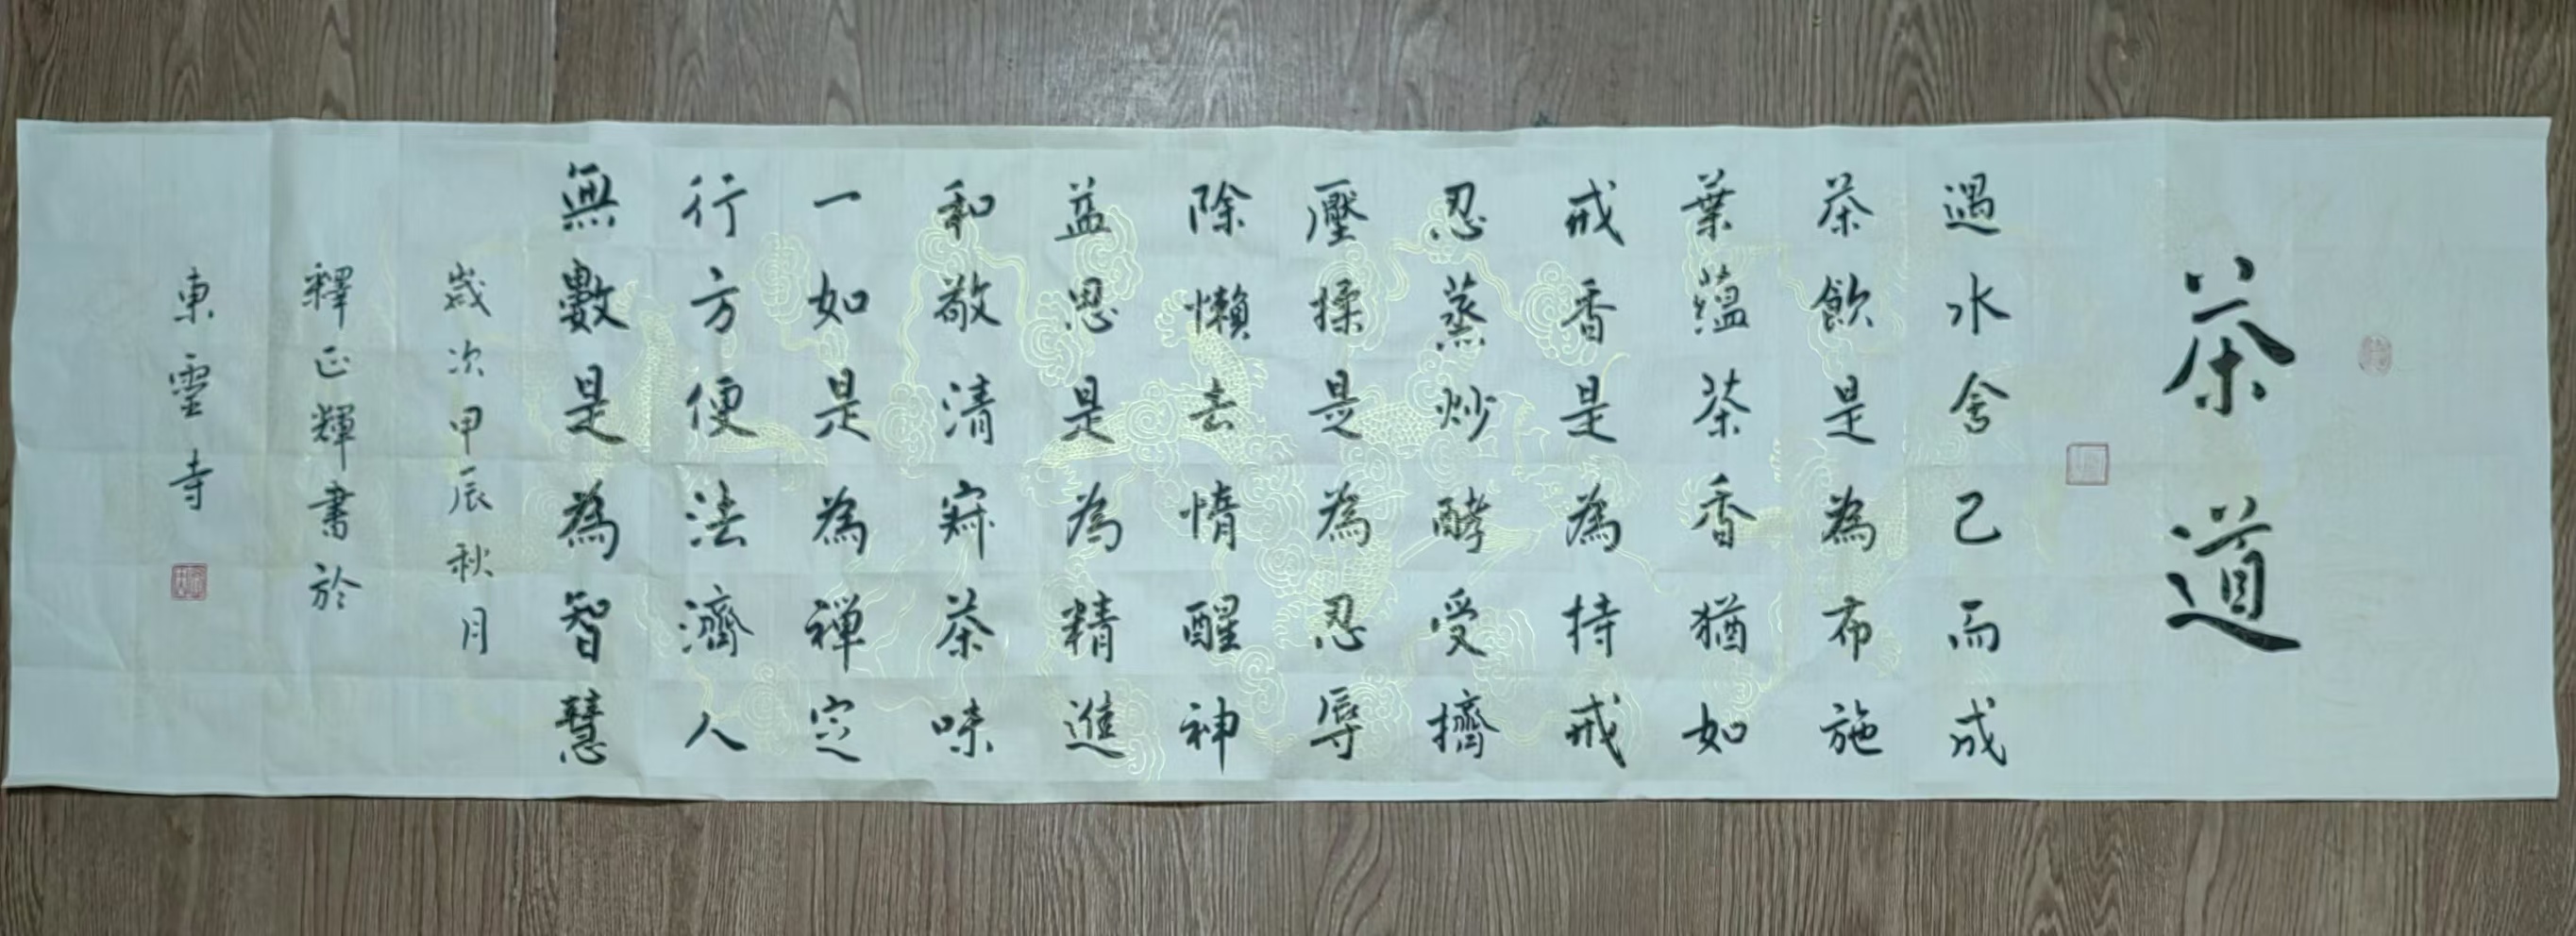 茶道
遇水舍己而成
茶飲是為布施
葉蘊茶香猶如
戒香是為持戒
忍蒸炒酵受擠
壓揉是為忍辱
除懶去惰醒神
益思是為精進
和敬清寂茶味
一如是為禅定
行方便法濟人
無數是為智慧
歲次甲辰秋月
釋正輝書於
東靈寺